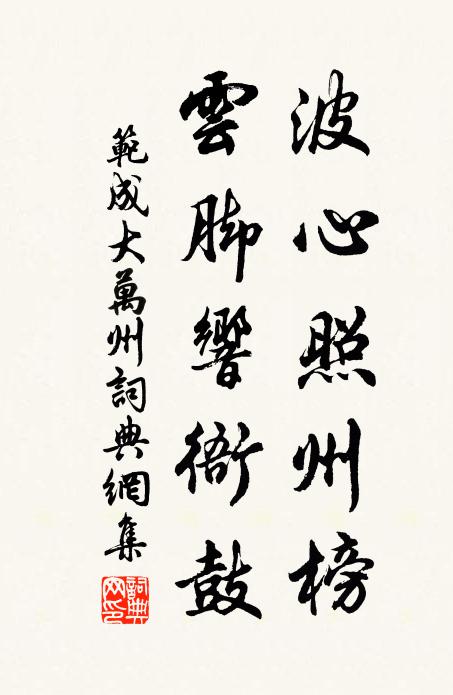 波心照州榜
雲脚響衙鼓
範成大萬州詞典網集
詞典网印